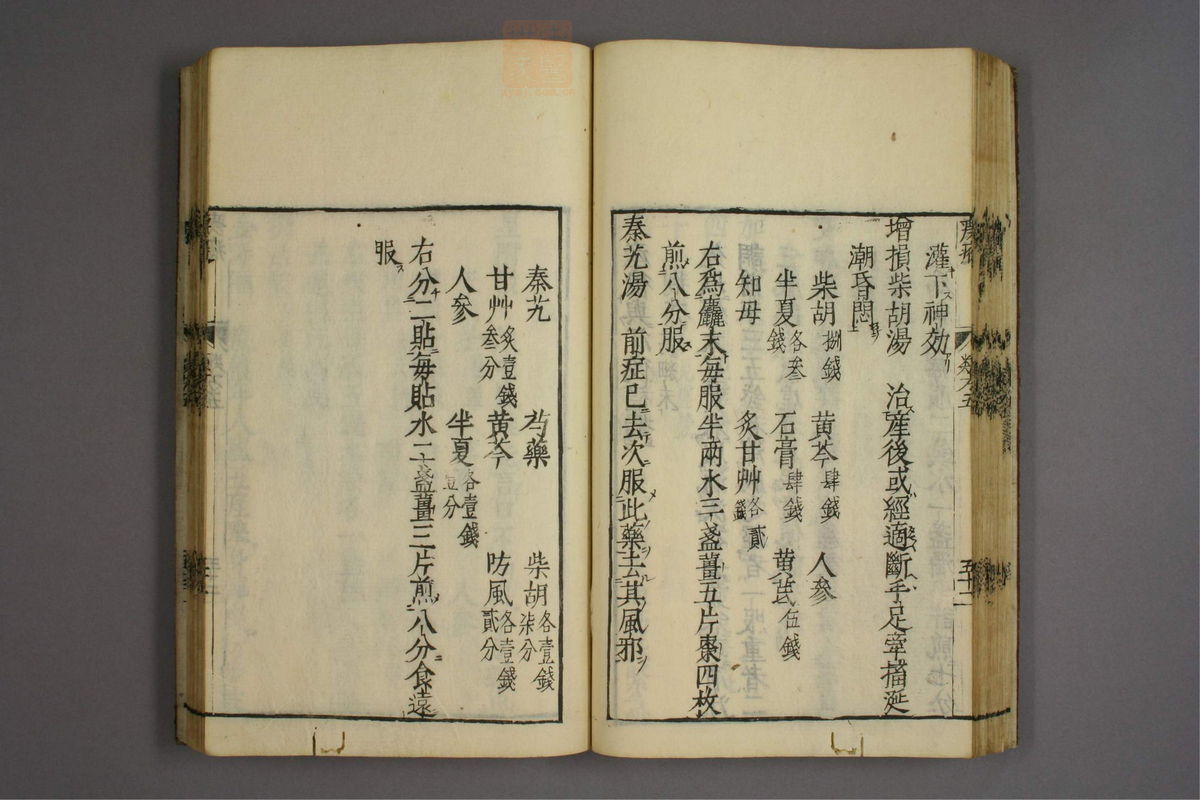 灌下神効
增損柴胡湯　治產後或經適斷手足牽搐涎
潮昏悶
柴胡捌錢　黃芩肆錢　人參
半夏各叁錢　石膏肆錢　黃芪伍錢
知母　炙甘艸各貳錢
右爲麤末每服半兩水三盞薑五片棗四枚
煎八分服
秦艽湯　前症已去次服此藥去其風邪
秦艽　芍藥　柴胡各壹錢柒分
甘艸炙壹錢叁分　黃芩　防風各壹錢貳分
人參　半夏各壹錢壹分
右分二貼每貼水二盞薑三片煎八分食遠
服